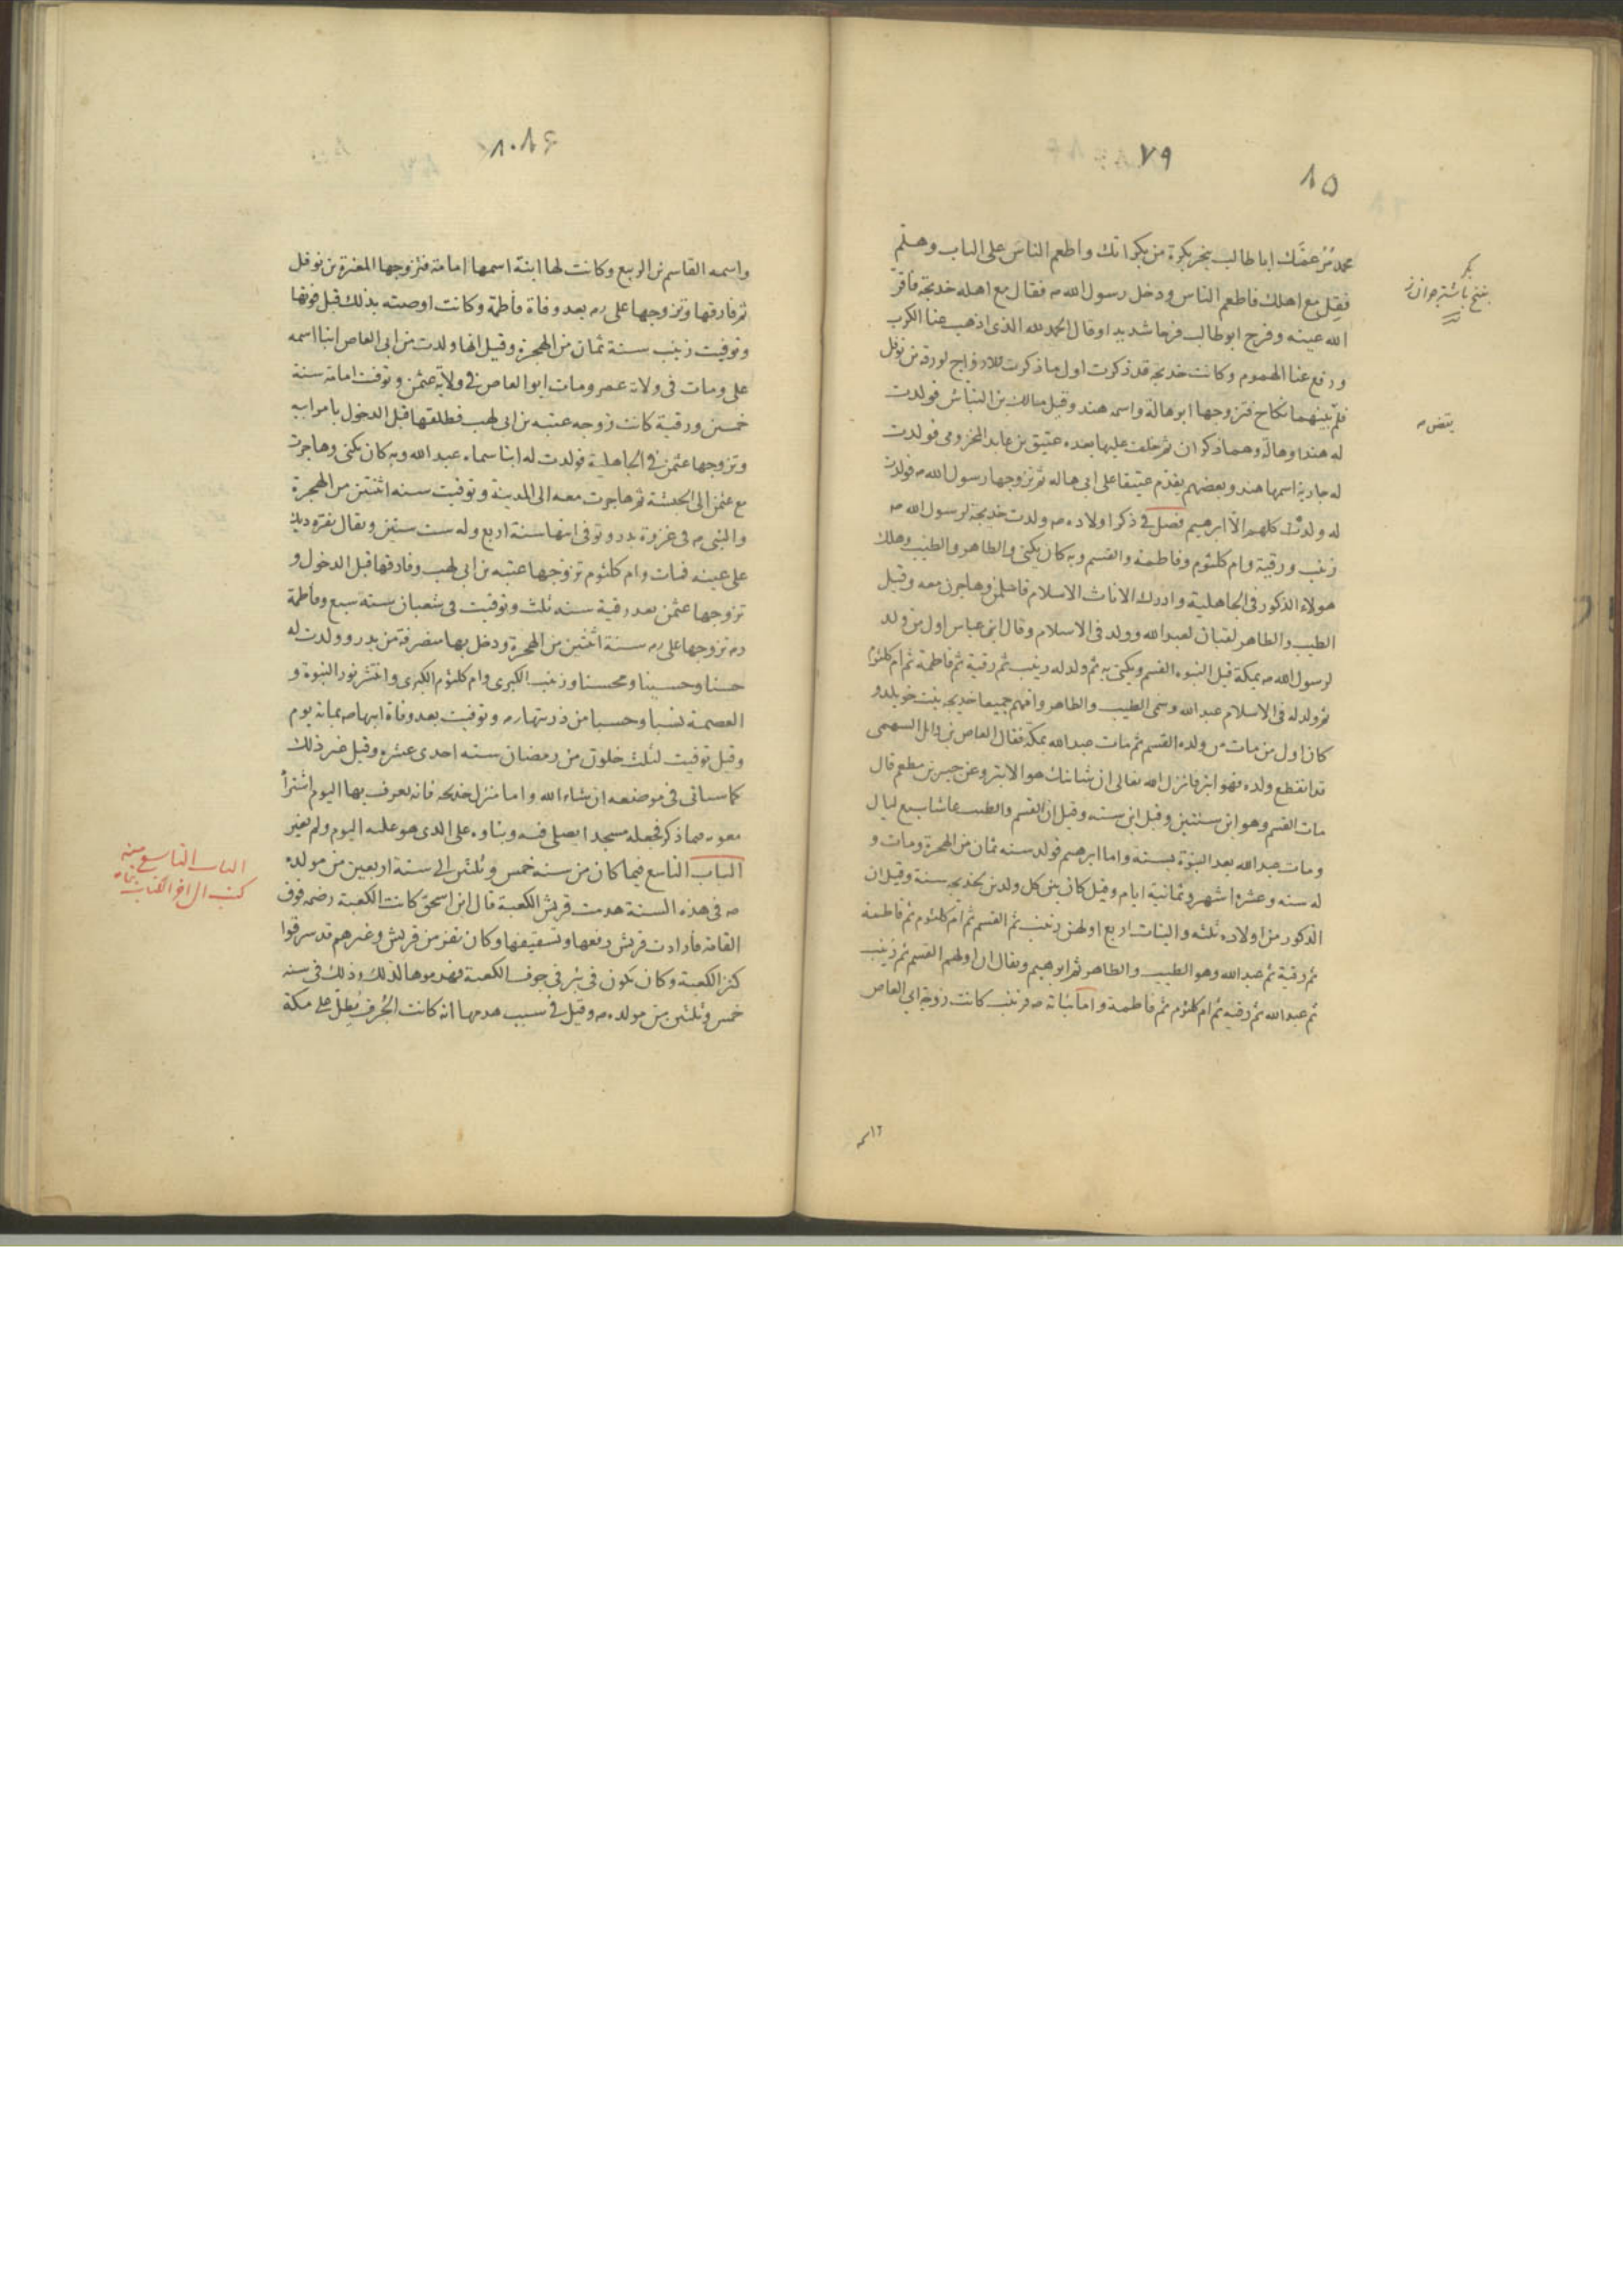 ٧٩
٨٥
محمد مُرْ عمّك ابا طالب ينحر بكرة من بكراتك واطعم الناس على الباب وهلمّ
فقِل مع اهلك فاطعم الناس ودخل رسول الله ص فقال مع اهله خديجة فاقرّ
الله عينه وفرح ابو طالب فرحا شديدا وقال الحمد لله الذى اذهب عنا الكرب
ودفع عنا الهموم وكانت خديجة قد ذكرت اول ما ذكرت للازواج لورقة بن نوفل
فلم بينهما نكاح فتزوجها ابو هالة واسمه هند وقيل مالك بن النباش فولدت
له هندا وهالة وهما ذكران ثم خلف عليها بعده عتيق بن عابد المخزومى فولدت
له جارية اسمها هند وبعضهم يقدم عتيقا على ابى هاله ثم تزوجها رسول الله ص فولدت
له ولدٌ كلهم الا ابرهيم فصل فى ذكر اولاده ص ولدت خديجة لرسول الله ص
زينب ورقية وام كلثوم وفاطمة والقسم وبه كان يكنى والطاهر والطيب وهلك
هولاء الذكور فى الجاهلية وادرك الاناث الاسلام فاسلمن وهاجرن معه وقيل
الطيب والطاهر لقبان لعبد الله وولد فى الاسلام وقال ابن عباس اول من ولد
لرسول الله ص بمكة قبل النبوه القسم ويكنى به ثم ولد له زينب ثم رقية ثم فاطمة ثم ام كلثوم
ثم ولد له فى الاسلام عبد الله وسمى الطيب والطاهر وامهم جميعا خديجه بنت خويلد و
كان اول من مات من ولده القسم ثم مات عبد الله بمكة فقال العاص بن وائل السهمى
قد انقطع ولده فهو ابتر فانزل الله تعالى ان شانئك هو الابتر وعن جبير بن مطعم قال
مات القسم وهو ابن سنتين وقيل ابن سنه وقيل ان القسم والطيب عاشا سبع ليال
ومات عبد الله بعد النبوة بسنه واما ابرهيم فولد سنه ثمان من الهجرة ومات و
له سنه وعشره اشهر وثمانية ايام وقيل كان بين كل ولدين لخديجه سنة وقيل ان
الذكور من اولاده ثلثه والبنات اربع اولهن زينب ثم القسم ثم ام كلثوم ثم فاطمة
ثم رقية ثم عبد الله وهو الطيب والطاهر ثم ابرهيم ويقال ان اولهم القسم ثم زينب
ثم عبد الله ثم رقيه ثم ام كلثوم ثم فاطمة واما بناته ص فزينب كانت زوجة ابى العاص
واسمه القاسم بن الربيع وكانت لها ابنة اسمها امامة فتزوجها المغيرة بن نوفل
ثم فارقها وتزوجها على رم بعد وفاة فاطمة وكانت اوصته بذلك قبل فوتها
وتوفيت زينب سنة ثمان من الهجرة وقيل انها ولدت من ابى العاص ابنا اسمه
على ومات فى ولاية عمر ومات ابو العاص فى ولاية عثمن وتوفت امامة سنة
خمسين ورقية كانت زوجه عتبه بن ابى لهب فطلقها قبل الدخول بامر ابيه
وتزوجها عثمن فى الجاهلية فولدت له ابنا سماه عبد الله وبه كان يكنى وهاجرت
مع عثمن الى الحبشة ثم هاجرت معه الى المدينة وتوفيت سنه اثنتين من الهجرة
والنبى ص فى غزوة بدر وتوفى ابنها سنة اربع وله ست سنين ويقال نقره ديك
على عينه فمات وام كلثوم تزوجها عتبه بن ابى لهب وفارقها قبل الدخول و
تزوجها عثمن بعد رقية سنه ثلث وتوفيت فى شعبان سنة سبع وفاطمة
رم تزوجها على رم سنة اثنتين من الهجرة ودخل بها منصرفة من بدر وولدت له
حسنا وحسينا ومحسنا وزينب الكبرى وام كلثوم الكبرى وانتشر نور النبوة و
العصمة نسبا وحسبا من ذريتها رم وتوفيت بعد وفاة ابيها ص بمائة يوم
وقيل توفيت لثلث خلون من رمضان سنة احدى عشره وقيل غير ذلك
كما سياتى فى موضعه ان شاء الله واما منزل خديجه فانه يعرف بها اليوم اشتراه
معويه فيما ذكر فجعله مسجدا يصلى فيه وبناوه على الذى هو عليه اليوم ولم يغير
الباب التاسع فيما كان من سنه خمس وثلثين الى سنة اربعين من مولده
ص فى هذه السنة هدمت قريش الكعبة قال ابن اسحق كانت الكعبة رضمه فوق
القامة فارادت قريش رفعها وتسقيفها وكان نفر من قريش وغيرهم قد سرقوا
كنز الكعبة وكان يكون فى بئر فى جوف الكعبة فهدموها لذلك وذلك فى سنه
خمس وثلثين من مولده ص وقيل فى سبب هدمها انه كانت الجُرف يُطِلّ على مكة
الباب التاسع